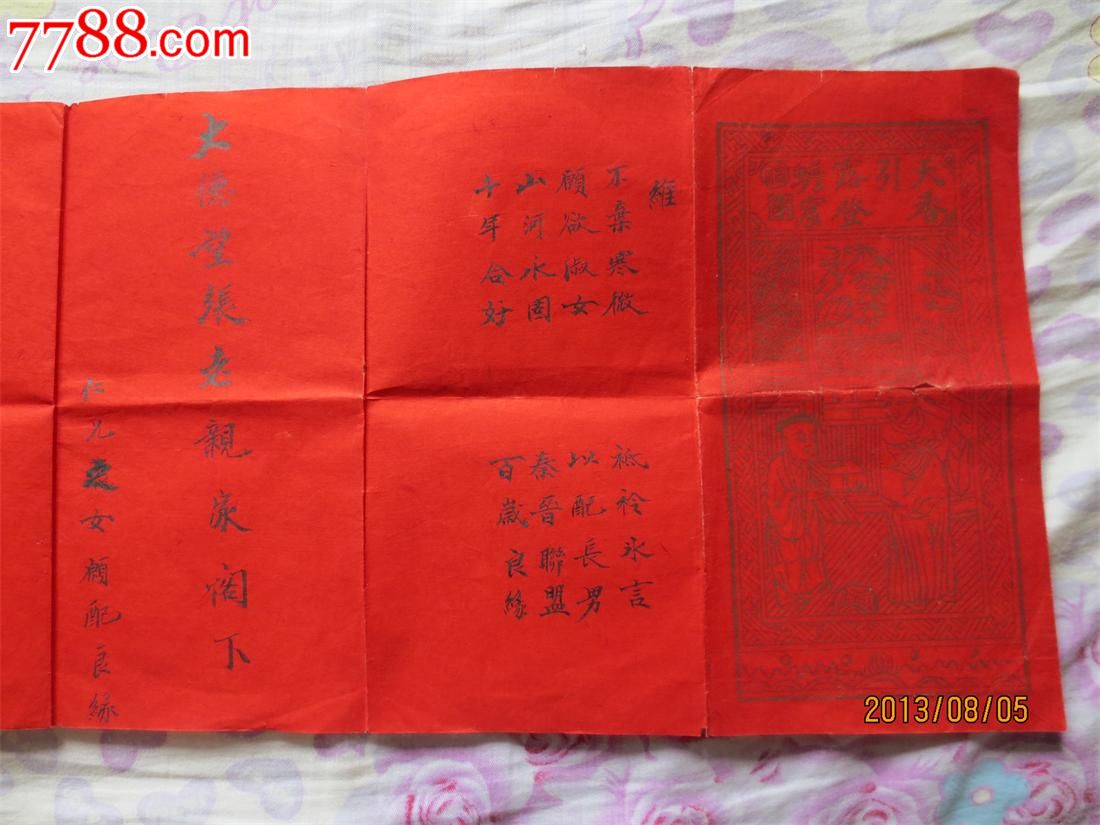 7788.com
天香
引
登
維
不棄寒微
願欲淑女
山河永固
千年合好
祗衿永言
以配長男
秦晉聯盟
百歲良緣
大德望張老親家閣下
仁兄之女願配良緣
2013/08/05